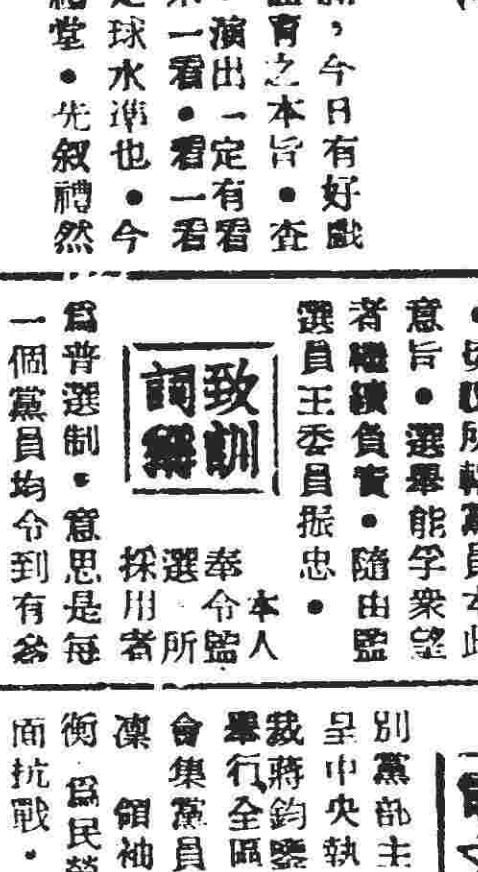 今日有好戲
育之本旨●查
演出一定有看
一看●看一看
球水準也●今
堂●先叙禮然
意旨●選舉能孚衆望
者繼續負責●隨由監
選員王委員振忠●
致訓
詞辭
本人
奉令監
選 所
採用者
爲普選制●意思是每
一個黨員均令到有參
別黨部主
呈中央執
裁蔣鈞鑒
舉行全區
會集黨員
凜 領袖
衡 爲民
面抗戰●